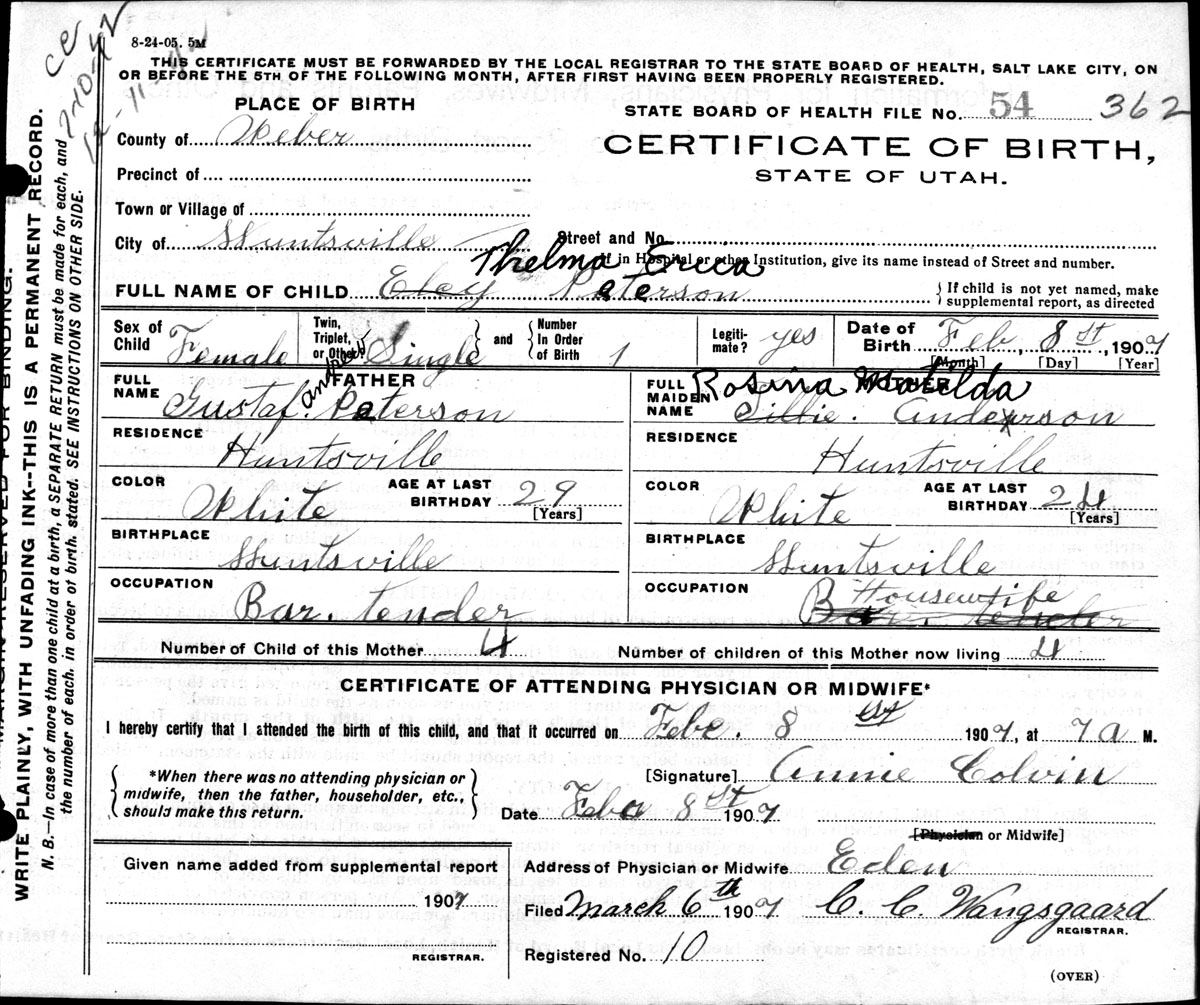 8-24-05. 5M
THIS CERTIFICATE MUST BE FORWARDED BY THE LOCAL REGISTRAR TO THE STATE BOARD OF HEALTH, SALT LAKE CITY, ON
OR BEFORE THE 5TH OF THE FOLLOWING MONTH, AFTER FIRST HAVING BEEN PROPERLY REGISTERED.
PLACE OF BIRTH
STATE BOARD OF HEALTH FILE No. 54 362
County of Weber
CERTIFICATE OF BIRTH,
STATE OF UTAH.
Precinct of
Town or Village of
City of Huntsville Street and No.
If in Hospital or other Institution, give its name instead of Street and number.
Thelma Erica
FULL NAME OF CHILD Eley Peterson { If child is not yet named, make supplemental report, as directed
Sex of Child Female Twin, Triplet, or Other? Single } and { Number In Order of Birth 1 Legiti-mate? yes Date of Birth Feb, 8 st, 1907
[Month] [Day] [Year]
FATHER
FULL NAME Gustaf. Andrew Peterson
MOTHER
Rosina Matilda
FULL MAIDEN NAME Tillie. Anderson
RESIDENCE Huntsville
RESIDENCE Huntsville
COLOR White AGE AT LAST BIRTHDAY 29 [Years]
COLOR White AGE AT LAST BIRTHDAY 24 [Years]
BIRTHPLACE Huntsville
BIRTHPLACE Huntsville
OCCUPATION Bar. tender
OCCUPATION Housewife
Bar. tender
Number of Child of this Mother 4 Number of children of this Mother now living 4
CERTIFICATE OF ATTENDING PHYSICIAN OR MIDWIFE*
I hereby certify that I attended the birth of this child, and that it occurred on Febr. 8 st 1907, at 7 a M.
{ *When there was no attending physician or midwife, then the father, householder, etc., should make this return. }
[Signature] Annie Colvin
Date Feba 8 st 1907
[Physician or Midwife]
Given name added from supplemental report
1907
REGISTRAR.
Address of Physician or Midwife Eden
Filed March 6th 1907 C. C. Wangsgaard
REGISTRAR.
Registered No. 10
(OVER)
MARGIN RESERVED FOR BINDING.
WRITE PLAINLY, WITH UNFADING INK--THIS IS A PERMANENT RECORD.
N. B.—In case of more than one child at a birth, a SEPARATE RETURN must be made for each, and
the number of each, in order of birth, stated. SEE INSTRUCTIONS ON OTHER SIDE.